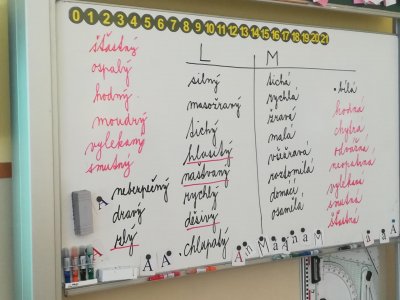 0 1 2 3 4 5 6 7 8 9 10 11 12 13 14 15 16 17 18 19 20 21
L M
šťastný
ospalý
hodný
moudrý
vylekaný
smutný
nebezpečný
dravý
zlý
silný
masožravý
tichý
hlasitý
naštvaný
rychlý
děsivý
chlupatý
tichá
rychlá
žravá
malá
všežravá
roztomilá
domácí
osamělá
bílá
hodná
chytrá
odvážná
neopatrná
smutná
šťastná